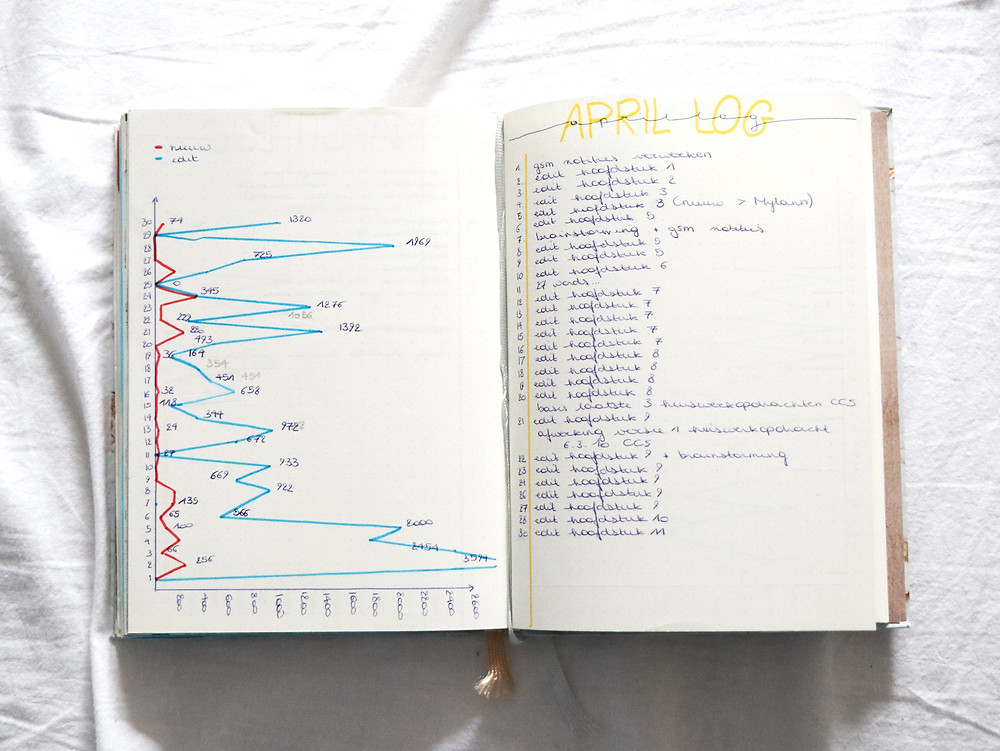 nieuw
edit
30 74 1320
29
28 1969
27 725
26
25 0
24 345
23 1276
1086
22 222
21 220 1392
20 493
19 36 164
18 354
17 451 451
16 38 658
15 118
14 344
13 24 972
12 672
11 27
10 933
9 669
8 922
7 135
6 65 566
5 100 2000
4
3 66 2454
2 256 3594
1
200 400 600 800 1000 1200 1400 1600 1800 2000 2200 2400 2600
APRIL LOG
april log
1. gsm notities verwerken
2. edit hoofdstuk 1
3 edit hoofdstuk 2
4. edit hoofdstuk 3
5 edit hoofdstuk 3 (nieuw > Mylann)
6 edit hoofdstuk 5
7 brainstorming + gsm notities
8 edit hoofdstuk 5
9 edit hoofdstuk 5
10 edit hoofdstuk 6
11 27 words...
12 edit hoofdstuk 7
13 edit hoofdstuk 7
14 edit hoofdstuk 7
15 edit hoofdstuk 7
16 edit hoofdstuk 7
17 edit hoofdstuk 8
18 edit hoofdstuk 8
19 edit hoofdstuk 8
20 edit hoofdstuk 8
basis laatste 3 huiswerkopdrachten CC5
21 edit hoofdstuk 9
afwerking versie 1 huiswerkopdracht
6.3.10 CC5
22 edit hoofdstuk 9 + brainstorming
23 edit hoofdstuk 9
24 edit hoofdstuk 9
26 edit hoofdstuk 9
27 edit hoofdstuk 9
28 edit hoofdstuk 10
30 edit hoofdstuk 11